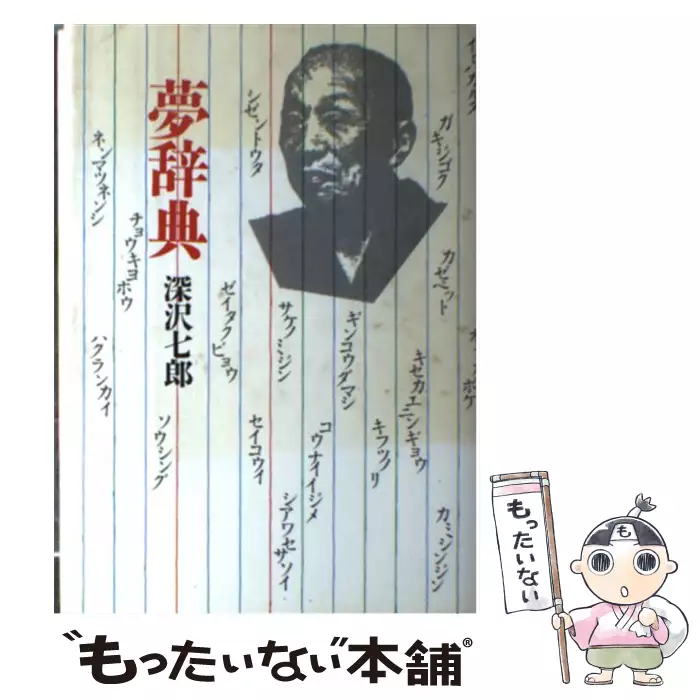 夢辞典
深沢七郎
ガキジゴク
シゼントウタ
ネンマツネンシ
チョウキヨホウ
カゼニット
ゼイタクビョウ
サケノミジン
ギンコウダマシ
キセカエニンギョウ
ハクランカイ
ソウシング
セイコウイ
コウナイイジメ
キフツノリ
シアワセサソイ
カミシンジン
も
もったいない
“もったいない本舗®